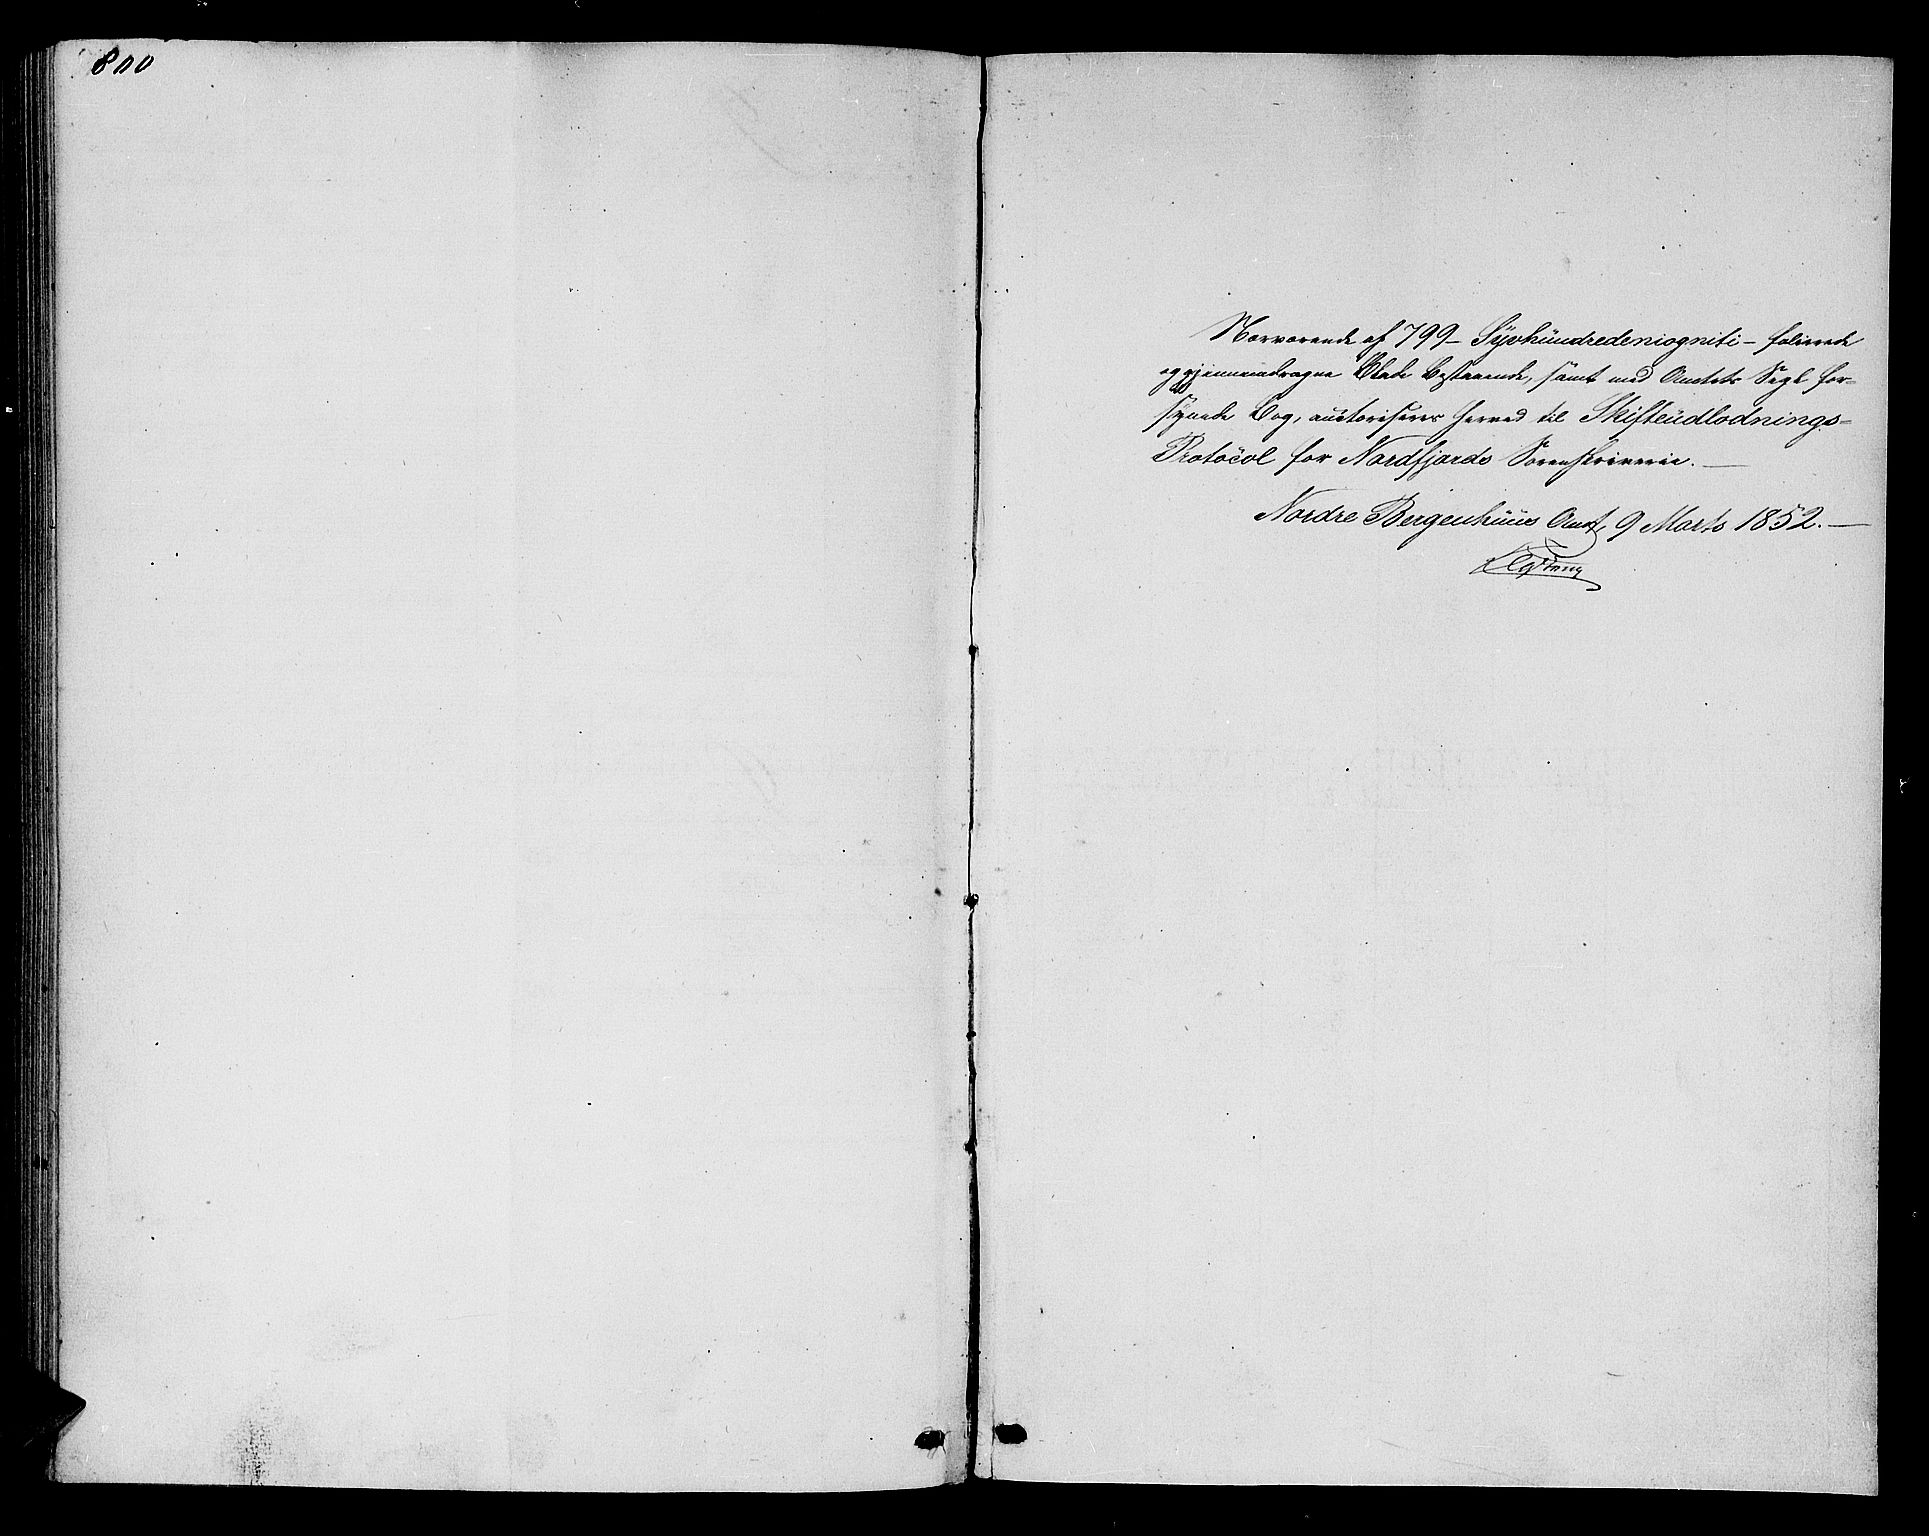 800
Nærværende af 799 - Syvhundredeniogniti - folierede
og gjennemdragne Blade bestaaende, samt med Amtets Segl for=
synede Bog, auctoriseres herved til Skifteudlodnings=
Protocol for Nordfjords Sorenskriverie. —
Nordre Bergenhuus Amt, 9 Marts 1852. —